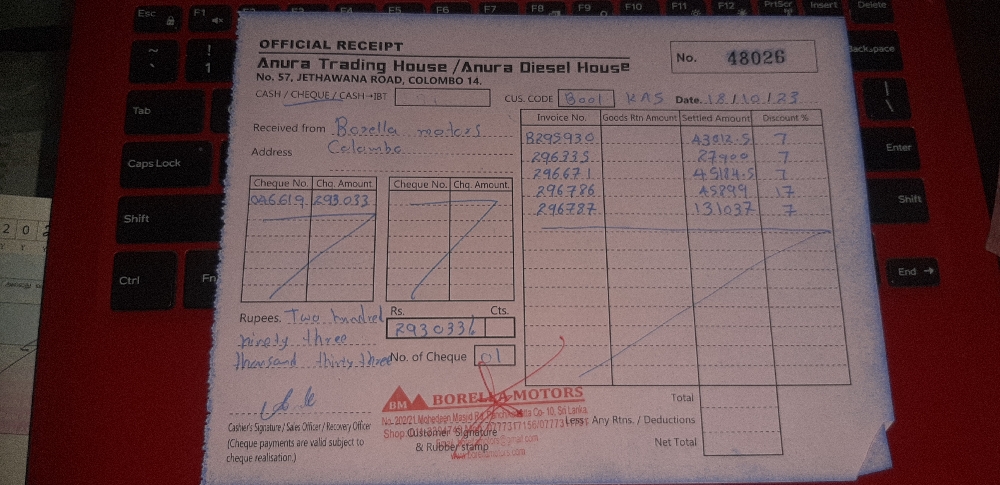 OFFICIAL RECEIPT
No. 48026
Anura Trading House /Anura Diesel House
No. 57, JETHAWANA ROAD, COLOMBO 14.
CASH / CHEQUE / CASH-IBT
CUS. CODE Boo1 KAS Date. 18/10/23
Received from Borella motors
Address Colombo
Invoice No. Goods Rtn Amount Settled Amount Discount %
B295930 43012.5 7
296335 27900 7
296671 45184.5 7
296786 45899 17
296787 131037 7
Cheque No. Chq. Amount Cheque No. Chq. Amount
046619 293.033
Rupees. Two hundred
ninety three
thousand thirty three
Rs. Cts.
293033/
No. of Cheque 01
BM BORELLA MOTORS
Customer Signature
& Rubber stamp
Casher's Signature / Sales Officer / Recovery Officer
(Cheque payments are valid subject to
cheque realisation.)
Total
Less: Any Rtns. / Deductions
Net Total
Esc F1 F5 F6 F7 F8 F9 F10 F11 F12 PrtScr Insert Delete
Backspace
~ ` ! 1
Tab | \
Caps Lock Enter
Shift Shift
Ctrl Fn End →
2 0 2